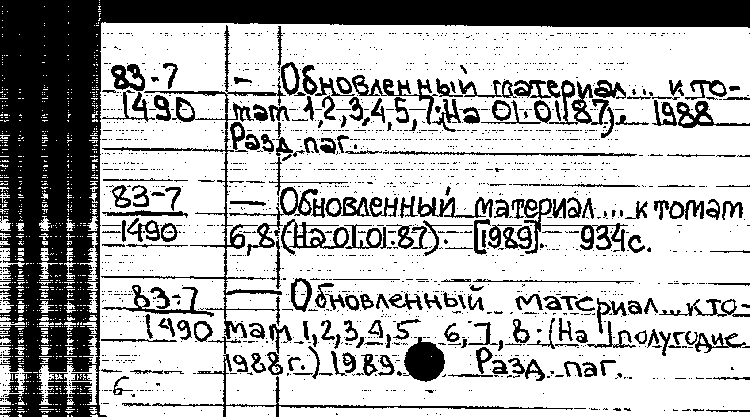 83-7 — Обновленный материал... к то-
1490 мам 1,2,3,4,5,7:(На 01.01.87). 1988
Разд. паг.
83-7 — Обновленный материал... к томам
1490 6,8:(На 01.01.87). [1989]. 934с.
83-7 — Обновленный материал... к то-
1490 мам 1,2,3,4,5, 6,7,8:(На I полугодие
1988г.) 1989. Разд. паг.
6.